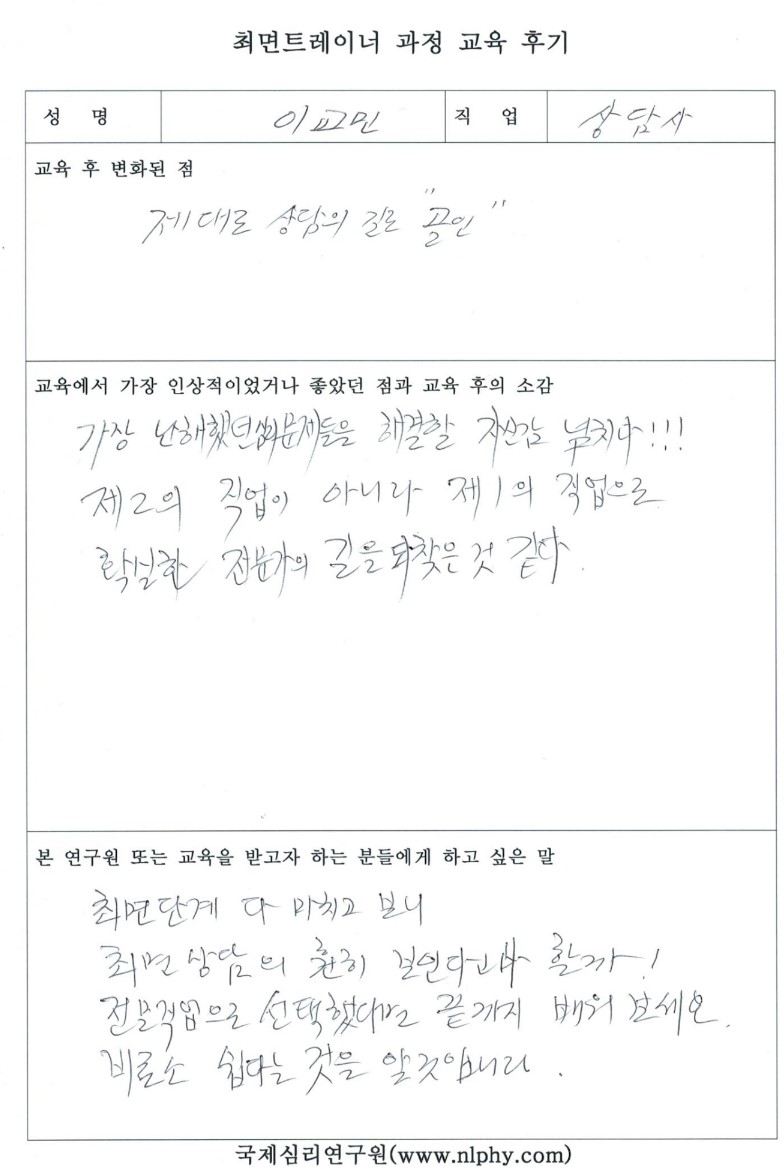 최면트레이너 과정 교육 후기
성 명 이교민 직 업 상담사
교육 후 변화된 점
제대로 상담의 길로 "골인"
교육에서 가장 인상적이었거나 좋았던 점과 교육 후의 소감
가장 난해했던 문제들을 해결할 자신감 넘치다!!!
제2의 직업이 아니라 제1의 직업으로
확실한 전문가의 길을 되찾은 것 같다.
본 연구원 또는 교육을 받고자 하는 분들에게 하고 싶은 말
최면단계 다 마치고 보니
최면 상담의 훤히 보인다고나 할까!
전문직업으로 선택했다면 끝까지 배워 보세요.
비로소 쉽다는 것을 알것입니다.
국제심리연구원(www.nlphy.com)